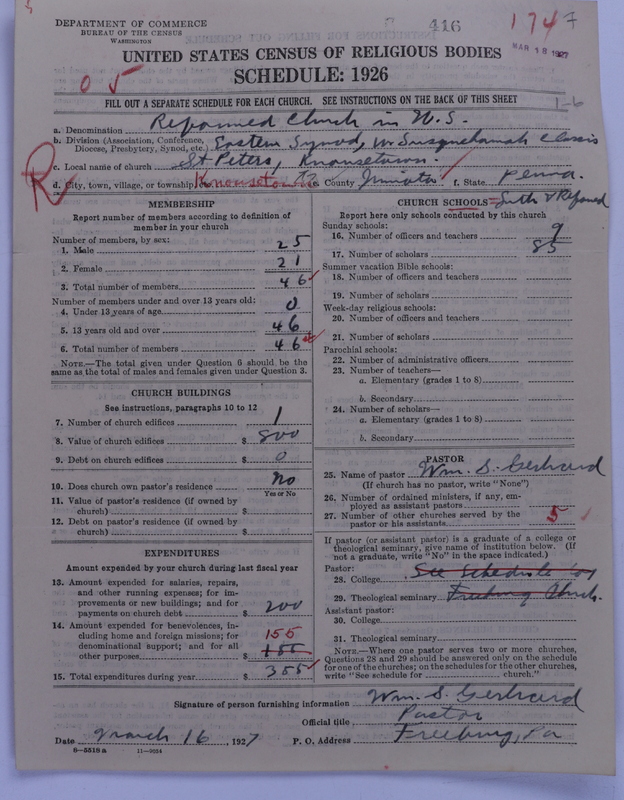 DEPARTMENT OF COMMERCE
BUREAU OF THE CENSUS
WASHINGTON
416
1747
MAR 18 1927
UNITED STATES CENSUS OF RELIGIOUS BODIES
SCHEDULE: 1926
05
FILL OUT A SEPARATE SCHEDULE FOR EACH CHURCH. SEE INSTRUCTIONS ON THE BACK OF THIS SHEET
1-6
a. Denomination Reformed Church in U.S.
b. Division (Association, Conference, Diocese, Presbytery, Synod, etc.) Eastern Synod, W. Susquehannah Classis
c. Local name of church St Peters, Knousetown.
R
d. City, town, village, or township, etc. Knousetown e. County Juniata f. State Penna.
MEMBERSHIP
Report number of members according to definition of
member in your church
Number of members, by sex:
1. Male 25
2. Female 21
3. Total number of members 46
Number of members under and over 13 years old:
4. Under 13 years of age 0
5. 13 years old and over 46
6. Total number of members 46
NOTE.—The total given under Question 6 should be the
same as the total of males and females given under Question 3.
CHURCH BUILDINGS
See instructions, paragraphs 10 to 12
7. Number of church edifices 1
8. Value of church edifices $ 800
9. Debt on church edifices $ 0
10. Does church own pastor's residence No
Yes or No
11. Value of pastor's residence (if owned by
church) $
12. Debt on pastor's residence (if owned by
church) $
EXPENDITURES
Amount expended by your church during last fiscal year
13. Amount expended for salaries, repairs,
and other running expenses; for im-
provements or new buildings; and for
payments on church debt $ 200
14. Amount expended for benevolences, in-
cluding home and foreign missions; for
denominational support; and for all 155
other purposes $ 155
15. Total expenditures during year $ 355
CHURCH SCHOOLS = Luth & Reformed
Report here only schools conducted by this church
Sunday schools:
16. Number of officers and teachers 9
17. Number of scholars 85
Summer vacation Bible schools:
18. Number of officers and teachers
19. Number of scholars
Week-day religious schools:
20. Number of officers and teachers
21. Number of scholars
Parochial schools:
22. Number of administrative officers
23. Number of teachers—
a. Elementary (grades 1 to 8)
b. Secondary
24. Number of scholars—
a. Elementary (grades 1 to 8)
b. Secondary
PASTOR
25. Name of pastor Wm. S. Gerhard
(If church has no pastor, write "None")
26. Number of ordained ministers, if any, em-
ployed as assistant pastors
27. Number of other churches served by the
pastor or his assistants 5
If pastor (or assistant pastor) is a graduate of a college or
theological seminary, give name of institution below. (If
not a graduate, write "No" in the space indicated.)
Pastor:
28. College See Schedule for
29. Theological seminary Freeburg Church.
Assistant pastor:
30. College
31. Theological seminary
NOTE.—Where one pastor serves two or more churches,
Questions 28 and 29 should be answered only on the schedule
for one of the churches; on the schedules for the other churches,
write "See schedule for church."
Signature of person furnishing information Wm. S. Gerhard
Official title Pastor
Date March 16, 1927 P. O. Address Freeburg, Pa
8-5518 a 11-9034